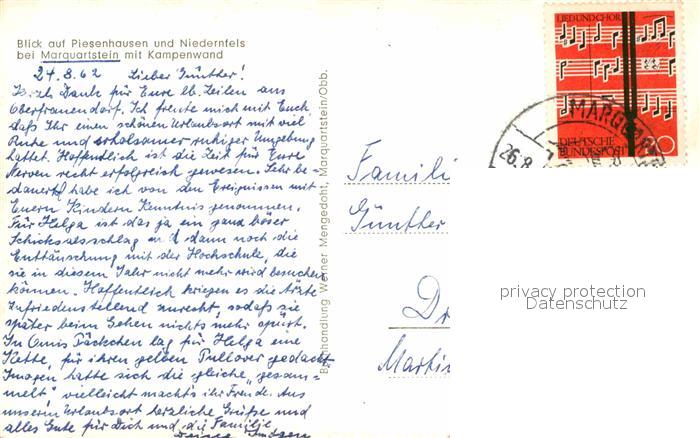 Blick auf Piesenhausen und Niedernfels
bei Marquartstein mit Kampenwand
24.8.62 Lieber Günther!
Herzl. Dank für Eure lb. Zeilen aus
Oberfrauendorf. Ich freute mich mit Euch,
daß Ihr einen schönen Urlaubsort mit viel
Ruhe und erholsamer ruhiger Umgebung
hattet. Hoffentlich ist die Zeit für Eure
Nerven recht erfolgreich gewesen. Sehr be-
dauert habe ich von den Ereignissen mit
Euern Kindern Kenntnis genommen.
Für Helga ist das ja ein ganz böser
Schicksalsschlag und dann noch die
Enttäuschung mit der Hochschule, die
sie in diesem Jahr nicht mehr wird besuchen
können. Hoffentlich kriegen es die Ärzte
zufriedenstellend zurecht, sodaß sie
später beim Gehen nichts mehr spürt.
In Omis Päckchen lag für Helga eine
Kette, für ihren gelben Pullover gedacht.
Imogen hatte sich die gleiche "gesam-
melt", vielleicht macht's ihr Freude. Aus
unserm Urlaubsort herzliche Grüße und
alles Gute für Dich und die Familie
Buchhandlung Werner Mengedoht, Marquartstein/Obb.
LIED UND CHOR
DEUTSCHE
BUNDESPOST
20
MARQUART
26.8.
Famili
Günther
Dr
Martis
privacy protection
Datenschutz